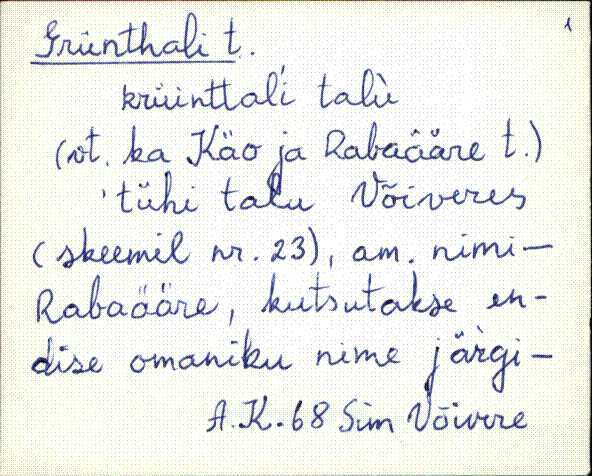 1
Grünthali t.
krüinttali talu
(vt. ka Käo ja Rabaääre t.)
tühi talu Võiveres
(skeemil nr. 23), am. nimi—
Rabaääre, kutsutakse en-
dise omaniku nime järgi—
A.K. 68 Sim Võivere